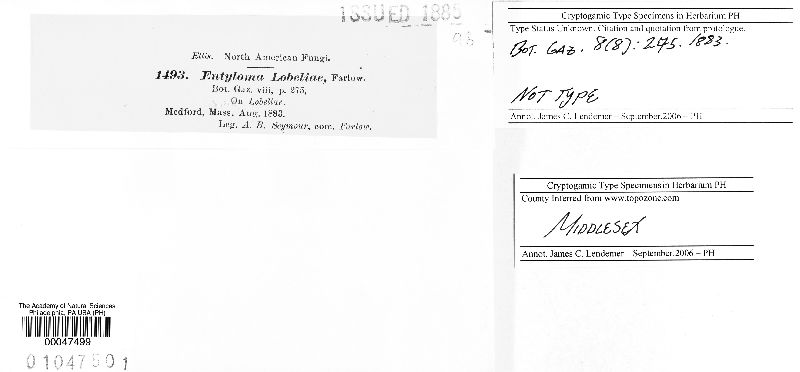 ISSUED 1885
Ellis. North American Fungi.
1493. Entyloma Lobeliae, Farlow.
Bot. Gaz. viii, p. 275.
On Lobeliae.
Medford, Mass. Aug. 1883.
Leg. A. B. Seymour, com. Farlow.
Cryptogamic Type Specimens in Herbarium PH
Type Status Unknown. Citation and quotation from protologue.
BOT. GAZ. 8(8): 275. 1883.
NOT TYPE
Annot. James C. Lendemer – September, 2006 – PH
Cryptogamic Type Specimens in Herbarium PH
County Inferred from www.topozone.com
MIDDLESEX
Annot. James C. Lendemer – September, 2006 – PH
The Academy of Natural Sciences
Philadelphia, PA USA (PH)
00047499
01047501